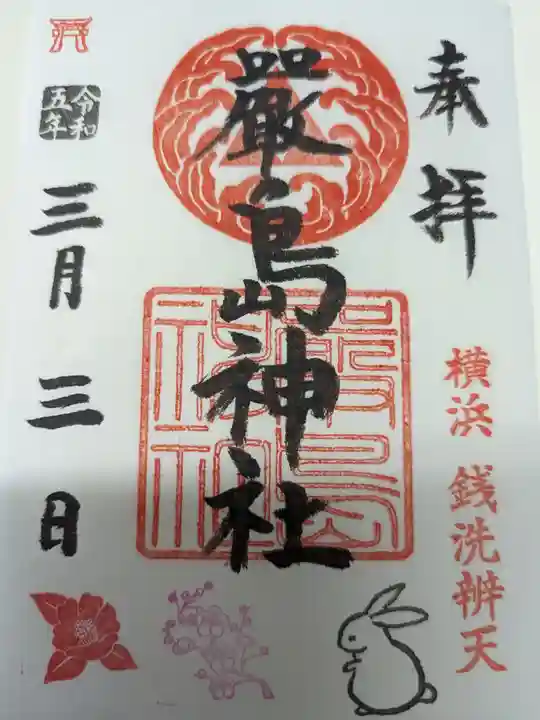 奉拝
横浜 銭洗辨天
嚴島神社
嚴島
神社
令和
五年
三月三日